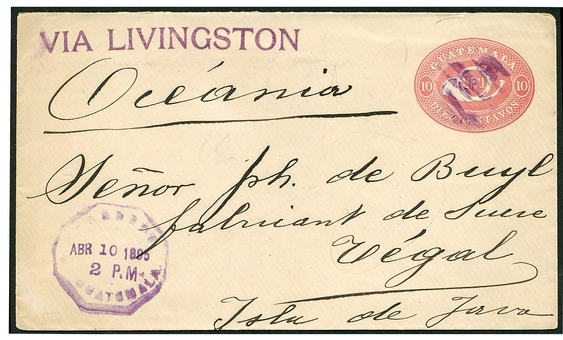 VIA LIVINGSTON
GUATEMALA
10 10
DIEZ CENTAVOS
Océania
Señor Jph. de Buyl
fabricant de Sucre
Tégal
Isla de Java
CORREOS
ABR 10 1895
2 P.M.
GUATEMALA